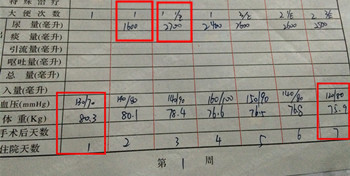 大便次数 1 1 1 1/2 1 2/2 1 2 1/2 2 3/2
尿量(毫升) 1600 2700 2400 2600 2600 2500
痰量(毫升)
引流量(毫升)
呕吐量(毫升)
总量(毫升)
入量(毫升)
血压(mmHg) 130/70 140/80 140/90 160/100 150/90 140/80
体重(Kg) 80.3 80.1 78.4 76.6 76.5 75.9
手术后天数
住院天数 1 2 3 4 5 6 7
第 1 周